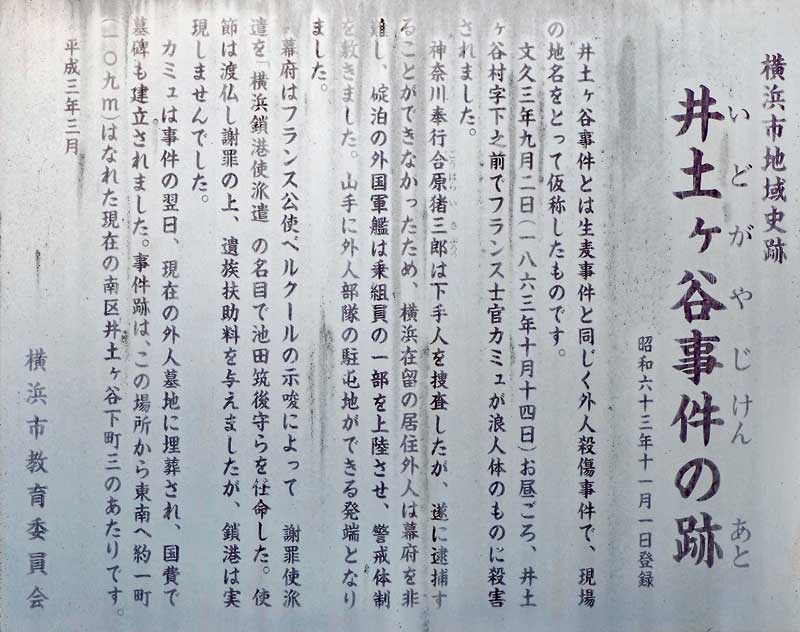 横浜市地域史跡
いどがやじけん あと
井土ヶ谷事件の跡
昭和六十三年十一月一日登録
井土ヶ谷事件とは生麦事件と同じく外人殺傷事件で、現場
の地名をとって仮称したものです。
文久三年九月二日(一八六三年十月十四日)お昼ごろ、井土
ヶ谷村字下之前でフランス士官カミュが浪人体のものに殺害
されました。
神奈川奉行合原猪三郎は下手人を捜査したが、遂に逮捕す
ることができなかったため、横浜在留の居住外人は幕府を非
難し、碇泊の外国軍艦は乗組員の一部を上陸させ、警戒体制
を敷きました。山手に外人部隊の駐屯地ができる発端となり
ました。
幕府はフランス公使ベルクールの示唆によって 謝罪使派
遣を「横浜鎖港使派遣 の名目で池田筑後守らを任命した。使
節は渡仏し謝罪の上、遺族扶助料を与えましたが、鎖港は実
現しませんでした。
カミュは事件の翌日、現在の外人墓地に埋葬され、国費で
墓碑も建立されました。事件跡は、この場所から東南へ約一町
(一〇九m)はなれた現在の南区井土ヶ谷下町三のあたりです。
平成三年三月
横浜市教育委員会